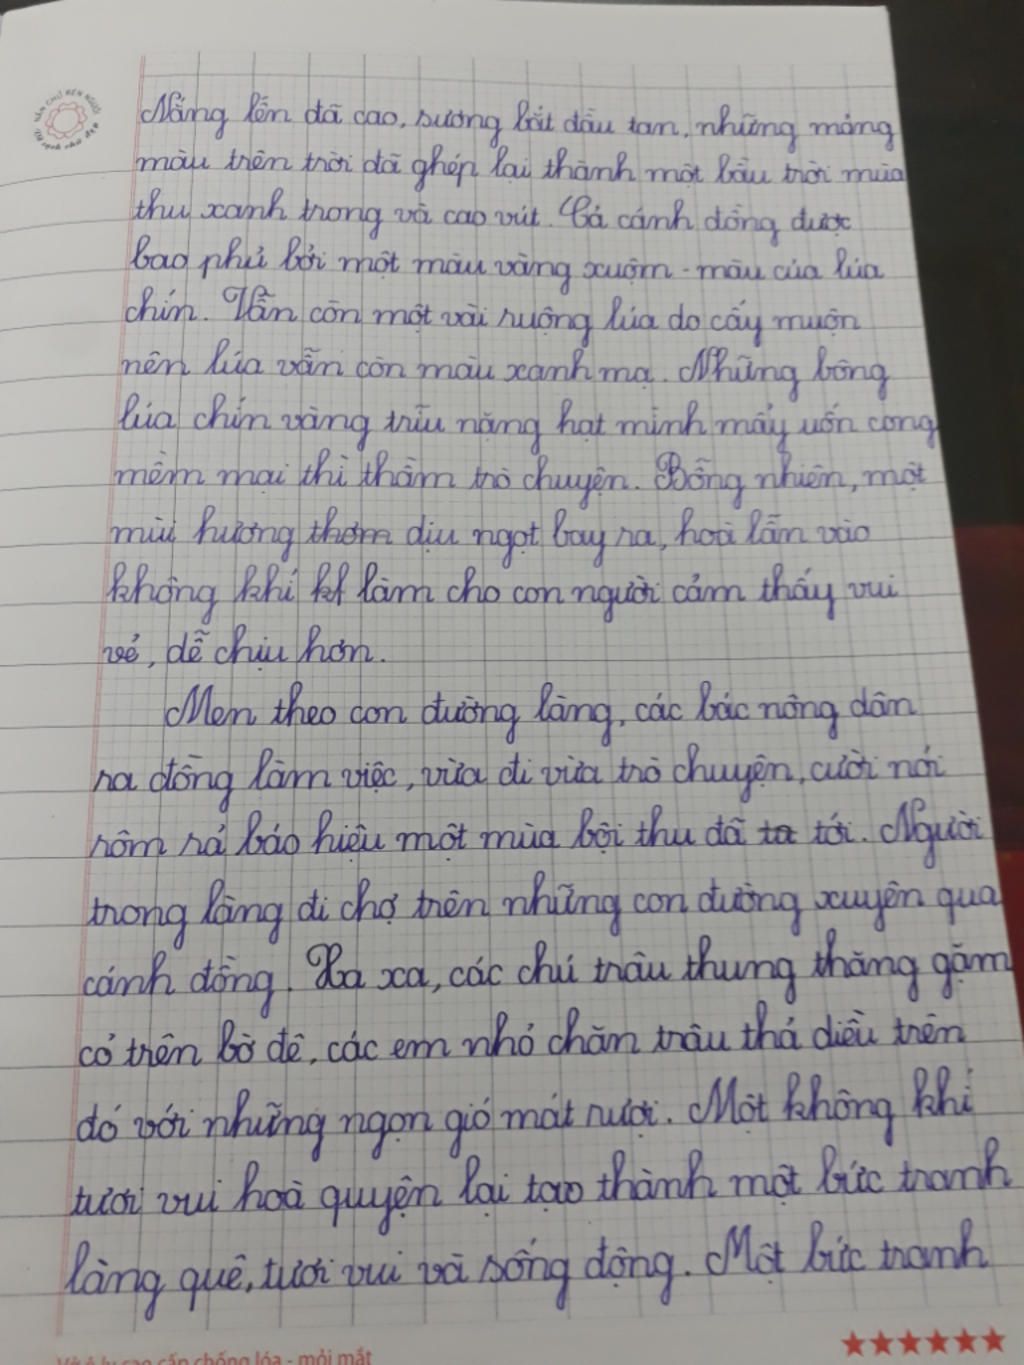 Nắng lên đã cao, sương bắt đầu tan, những mảng
màu trên trời đã ghép lại thành một bầu trời mùa
thu xanh trong và cao vút. Cả cánh đồng được
bao phủ bởi một màu vàng xuộm - màu của lúa
chín. Vẫn còn một vài ruộng lúa do cấy muộn
nên lúa vẫn còn màu xanh mạ. Những bông
lúa chín vàng trĩu nặng hạt mình mẩy uốn cong
mềm mại thì thầm trò chuyện. Bỗng nhiên, một
mùi hương thơm dịu ngọt bay ra, hoà lẫn vào
không khí làm cho con người cảm thấy vui
vẻ, dễ chịu hơn.
Men theo con đường làng, các bác nông dân
ra đồng làm việc, vừa đi vừa trò chuyện, cười nói
rôm rả báo hiệu một mùa bội thu đã ta tới. Người
trong làng đi chợ trên những con đường xuyên qua
cánh đồng. Xa xa, các chú trâu thung thăng gặm
cỏ trên bờ đê, các em nhỏ chăn trâu thả diều trên
đó với những ngọn gió mát rượi. Một không khí
tươi vui hoà quyện lại tạo thành một bức tranh
làng quê, tươi vui và sống động. Một bức tranh
cao cấp chống lóa - mỏi mắt